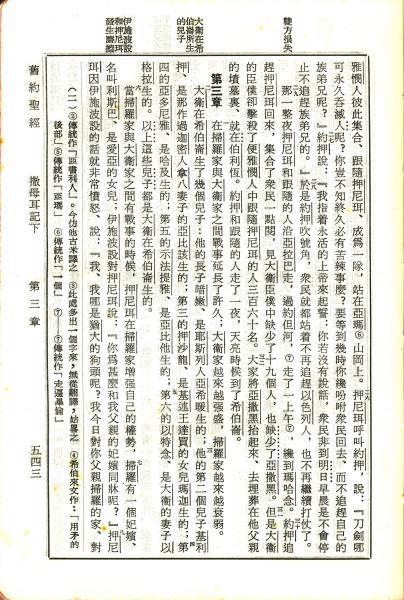 雙方損失
大衛在希
伯崙所生
的兒子
伊施波設
和押尼珥
發生齟齬
雅憫人彼此集合、跟隨押尼珥、成爲一隊，站在亞瑪⑥山岡上。押尼珥呼叫約押，說：『刀劍哪
可永久吞滅人呢？你豈不知終久必有苦辣事麼？要等到幾時你纔吩咐衆民回去、而不追趕自己的
族弟兄呢？』約押說：『我指着永活的上帝來起誓：你若沒有說話，衆民非到明日早晨是不會停
止不追趕族弟兄的。』於是約押吹號角，衆民就都站着不再追趕以色列人，也不再繼續打仗了。
那一整夜押尼珥和跟隨的人沿亞拉巴走，過約但河，⑦走了一上午⑦，纔到瑪哈念。約押追
趕押尼珥回來，集合了衆民一點閱，見大衛臣僕中缺少了十九個人，也缺少了亞撒黑。但是大衛
的臣僕卻擊殺了便雅憫人中跟隨押尼珥的人三百六十名。大家將亞撒黑抬起來、去埋葬在他父親
的墳墓裏、就在伯利恆。約押和跟隨的人走了一夜，天亮時候到了希伯崙。
第三章
在掃羅家與大衛家之間戰事延長了許久；大衛家越來越强盛，掃羅家越來越衰弱。
大衛在希伯崙生了幾個兒子：他的長子暗嫩、是耶斯列人亞希暖生的；他的第二個兒子基利
押、是那作過迦密人拿八妻子的亞比該生的；第三的押沙龍、是基述王達買的女兒瑪迦生的；第
四的亞多尼雅、是哈及生的；第五的示法提雅、是亞比他生的；第六的以特念、是大衛的妻子以
格拉生的。以上這些兒子都是大衛在希伯崙生的。
當掃羅家與大衛家之間有戰事的時候，押尼珥在掃羅家增强自己的權勢，掃羅有一個妃嬪、
名叫利斯巴、是愛亞的女兒；伊施波設對押尼珥說：『你爲甚麼和我父親的妃嬪同牀呢？』押尼
珥因伊施波設的話就非常憤怒、說：『我，我哪是猶大的狗頭呢？我今日對你父親掃羅的家、對
（二）②傳統作「亞書利人」。今仿他古米譯之　③此處多出一個字來，無從翻譯，姑畧之　④希伯來文作：「用矛的
後部」⑤傳統作「亞瑪」　⑥傳統作「一個」　⑦──⑦傳統作「走遍畢倫」
舊約聖經　撒母耳記下　第三章　五四三